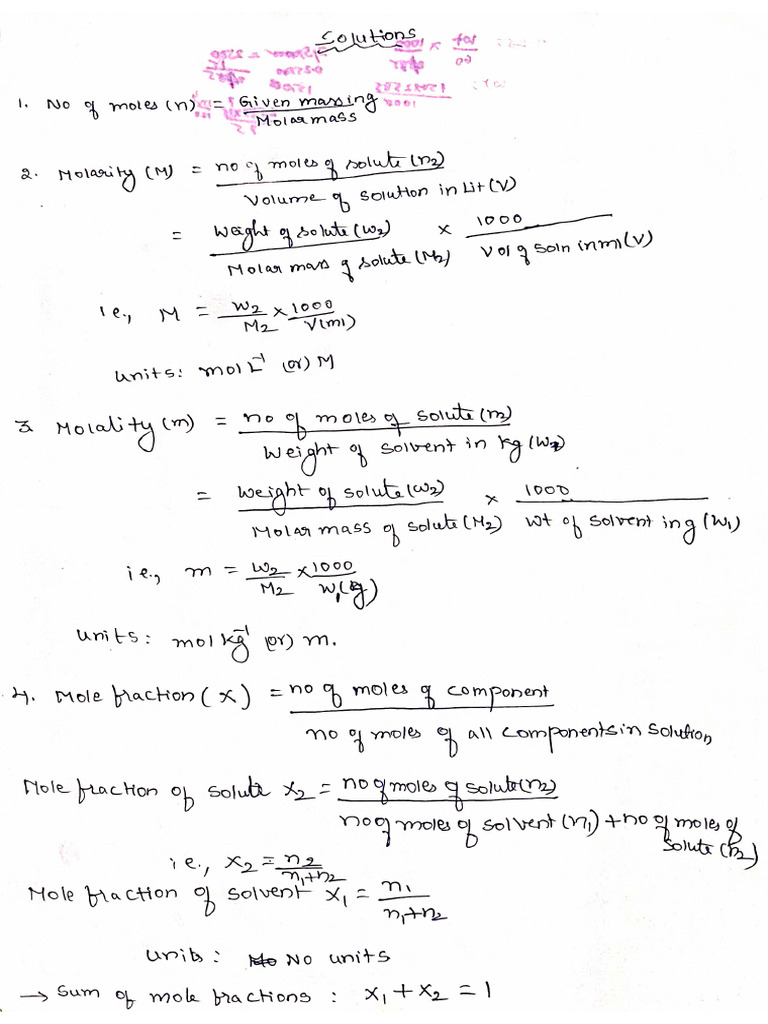 Solutions
1. No of moles (n) = Given mass in g / Molar mass
2. Molarity (M) = no of moles of solute (n2) / Volume of solution in Lit (V)
= Weight of solute (W2) / Molar mass of solute (M2) × 1000 / Vol of soln in ml (V)
i.e., M = W2/M2 × 1000/V(ml)
units: mol L⁻¹ (or) M
3 Molality (m) = no of moles of solute (n2) / Weight of solvent in kg
= Weight of solute (W2) / Molar mass of solute (M2) × 1000 / Wt of solvent in g (W1)
i.e., m = W2/M2 × 1000/W1(g)
units: mol kg⁻¹ (or) m.
4. Mole fraction (x) = no of moles of component / no of moles of all components in solution
Mole fraction of solute x2 = no of moles of solute (n2) / no of moles of solvent (n1) + no of moles of solute (n2)
i.e., x2 = n2 / n1+n2
Mole fraction of solvent x1 = n1 / n1+n2
units: No units
→ Sum of mole fractions : x1 + x2 = 1